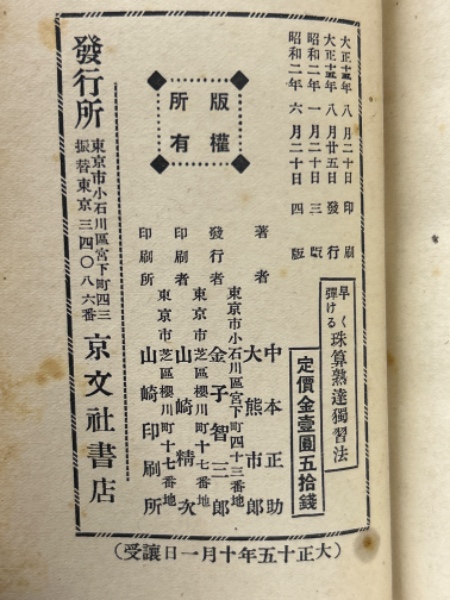 大正十五年八月二十日印刷
大正十五年八月廿五日發行
昭和二年一月二十日三版
昭和二年六月二十日四版
早く彈ける 珠算熟達獨習法
定價金壹圓五拾錢
版權所有
著者 中本正助
大熊市郎
東京市小石川區宮下町四十三番地
發行者 金子智三郎
東京市芝區櫻川町十七番地
印刷者 山崎精次
東京市芝區櫻川町十七番地
印刷所 山崎印刷所
發行所
東京市小石川區宮下町四三
振替東京三四〇八六番
京文社書店
(大正十五年十月一日讓受)